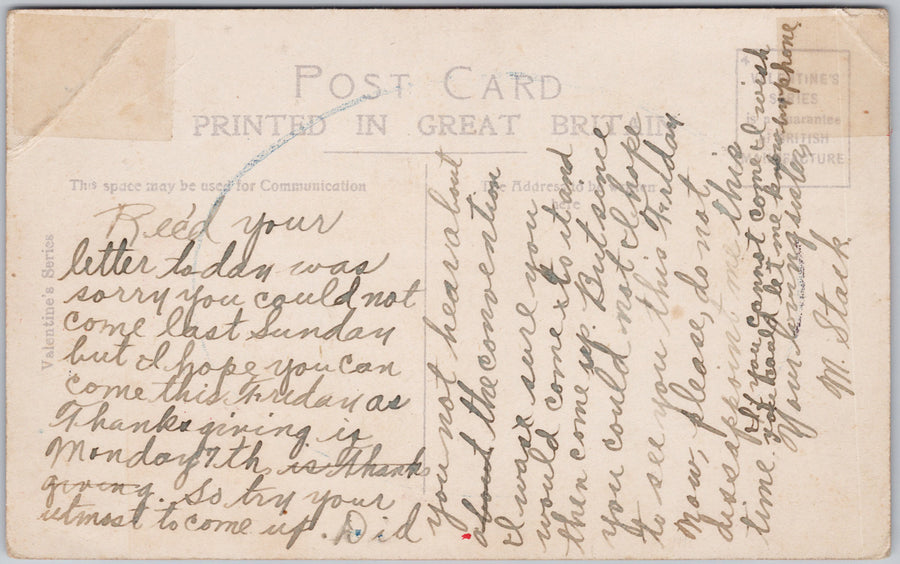 POST CARD
PRINTED IN GREAT BRITAIN
This space may be used for Communication
The Address to be written
here
VALENTINE'S
SERIES
is a guarantee
of BRITISH
MANUFACTURE
Valentine's Series
Rec'd your
letter today was
sorry you could not
come last Sunday
but I hope you can
come this Friday as
Thanksgiving is
Monday 7th, is Thanks
giving. So try your
utmost to come up. Did
you not hear about
about the convention
I was sure you
would come to it and
then come up. But since
you could not I hope
to see you this Friday.
Now, please, do not
dissappoint me this
time. If you cannot come I wish
you would let me know by phone.
Your loving sister
M. Stark